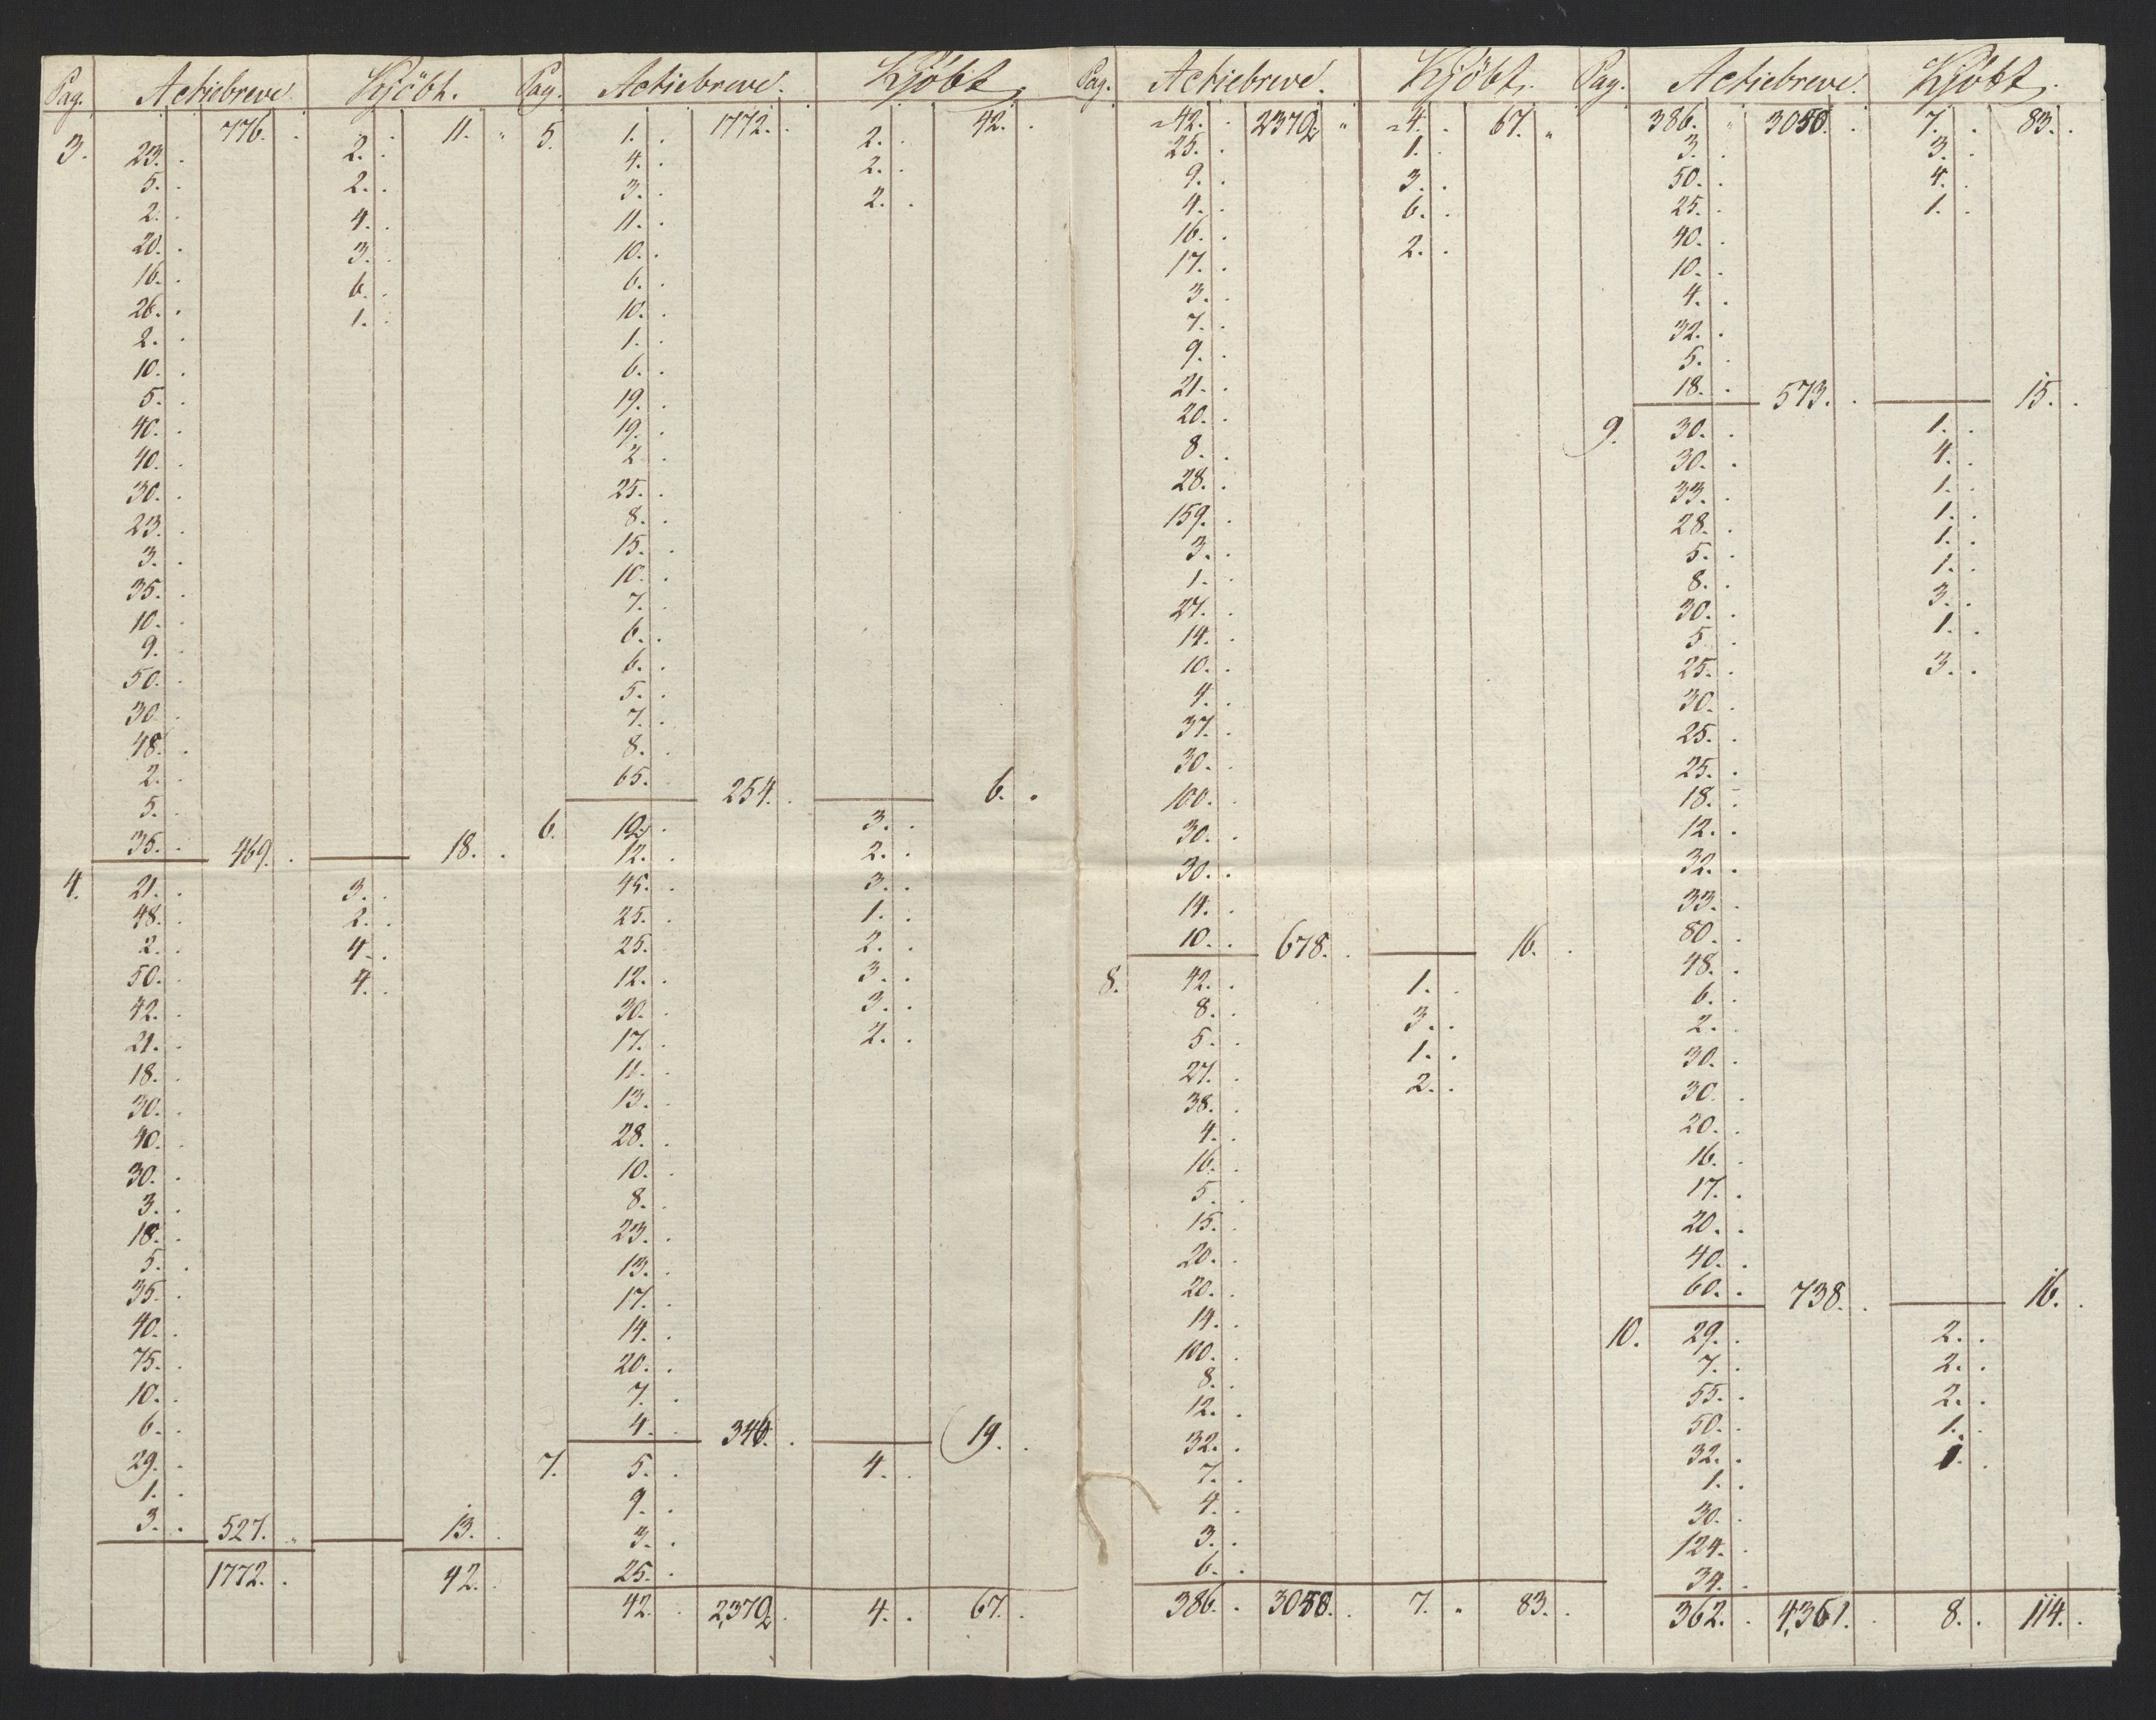 Pag. Actiebreve Kjöbt.
776. 11. "
3. 23. 2.
5. 2.
2. 4.
20. 3.
16. 6.
26. 1.
2.
10.
5.
40.
40.
30.
23.
3.
35.
10.
9.
50.
30.
48.
2.
5.
35. 469. 18.
4. 21. 3.
48. 2.
2. 4.
50. 4.
42.
21.
18.
30.
40.
30.
3.
18.
5.
35.
40.
75.
10.
6.
29.
1.
3. 527. " 13.
1772. 42.
Pag. Actiebreve. Kjöbt
5. 1. 1772. 2. 42.
4. 2.
3. 2.
11.
10.
6.
10.
1.
6.
19.
19.
2
25.
8.
15.
10.
7.
6.
6.
5.
7.
8.
65. 254. 6.
6. 12. 3.
12. 2.
45. 3.
25. 1.
25. 2.
12. 3.
30. 3.
17. 2.
11.
13.
28.
10.
8.
23.
13.
17.
14.
20.
7.
4. 346. 19.
7. 5. 4.
9.
3.
25.
42. 2,372. 4. 67.
Pag. Actiebreve. Kjöbt.
42. 2372. " 4. 67. "
25. 1.
9. 3.
4. 6.
16. 2.
17.
3.
7.
9.
21.
20.
8.
28.
159.
3.
1.
27.
14.
10.
4.
37.
30.
100.
30.
30.
14.
10. 678. 16.
8. 42. 1.
8. 3.
5. 1.
27. 2.
38.
4.
16.
5.
15.
20.
20.
14.
100.
8.
12.
32.
7.
4.
3.
6.
386. 3050. 7. " 83.
Pag. Actiebreve. Kjöbt.
386. " 3050. 7. 83.
3. 3.
50. 4.
25. 1.
40.
10.
4.
32.
5.
18. 573. 15.
9. 30. 1.
30. 4.
33. 1.
28. 1.
5. 1.
8. 1.
30. 3.
5 1.
25. 3.
30.
25.
25.
18.
12.
32.
33.
80.
48.
6.
2.
30.
30.
20.
16.
17.
20.
40.
60. 738. 16.
10. 29. 2.
7. 2.
55. 2.
50. 1.
32. 1.
1.
30.
124.
34.
362. 4,361. 8. 114.